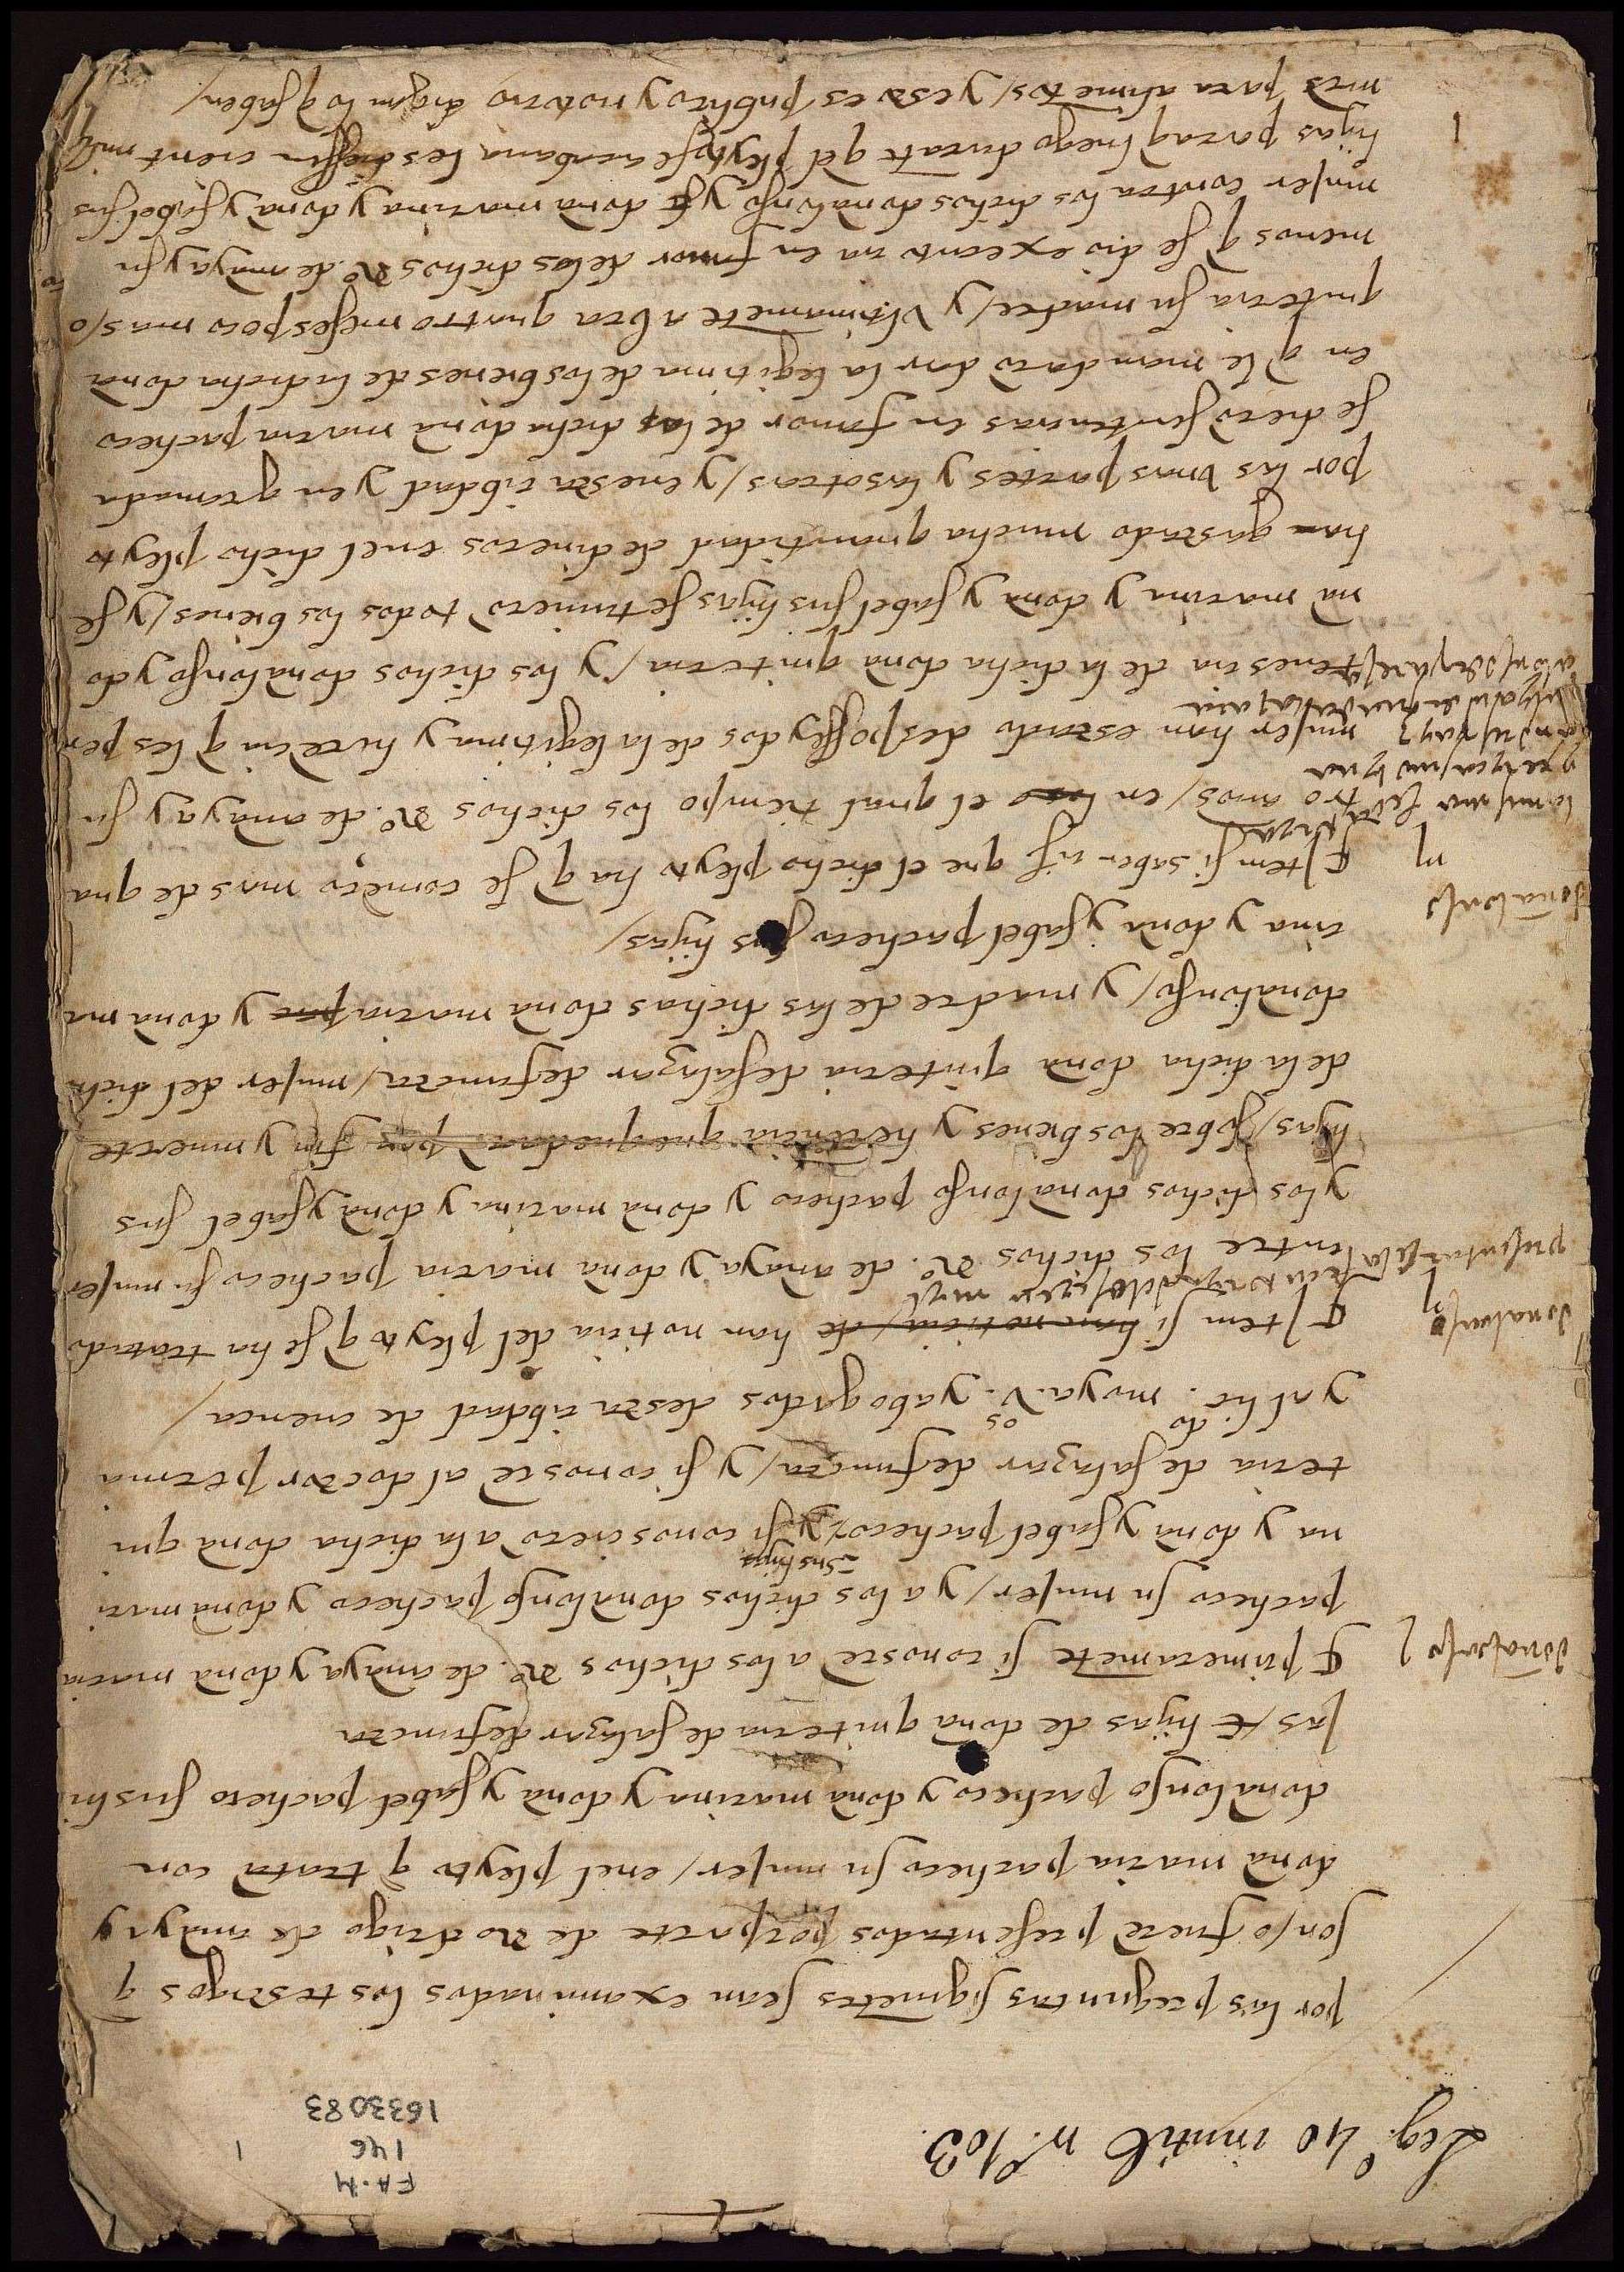 Leg.º 40 inutil nº 103.
FA-M
146
1
1633083
por las preguntas siguiẽtes sean examinados los testigos q̃
son /o fuerẽ presentados por parte de Rodrigo de anaya y
doña maria pacheco su muger / en el pleyto q̃ tratã con
don alonso pacheco y doña marina y doña ysabel pacheco sus hi
jas / hijas de doña quiteria de salazar defuncta
don alonso
primeramẽte si conoscẽ a los dichos Rº. de anaya y doña maria
pacheco su muger / y a los dichos don alonso pacheco y doña mari
sus hijas
na y doña ysabel pacheco / y si conosciero a la dicha doña qui
teria de salazar defuncta / y si conoscẽ al doctor
y al licdo. moya. vºs. y abogados desta cibdad de cuenca /
don alonso
Item si han noticia / de han noticia del pleyto q̃ se ha tratado
entre los dichos Rº. de anaya y doña maria pacheco su muger
y los dichos don alonso pacheco y doña marina y doña ysabel sus
hijas / sobre los bienes y herencia que quedarõ por fin y muerte
de la dicha doña quiteria de salazar defuncta / muger del dicho
don alonso / y madre de las dichas doña maria y doña ma
rina y doña ysabel pacheco sus hijas /
don alonso
Item si saben q̃ el dicho pleyto ha q̃ se começo mas de qua
tro años / en el qual tiempo los dichos Rº. de anaya y su
muger han estado desposseydos de la legitima y herẽcia q̃ les per
tenescia de la dicha doña quiteria / y los dichos don alonso y do
ña marina y doña ysabel sus hijas se tuvierõ todos los bienes / y se
han gastado mucha quantidad de dineros en el dicho pleyto
por las unas partes y las otras / y en esta cibdad y en granada
se dierõ sentencias en favor de la dicha doña maria pacheco
en q̃ le mandarõ dar la legitima de los bienes de la dicha doña
quiteria su madre / y Ultimamẽte abra quatro meses poco mas /o
menos q̃ se dio executoria en favor de los dichos Rº. de anaya y su
muger contra los dichos don alonso y doña marina y doña ysabel sus
hijas para q̃ luego durãte q̃l pleyto se acabava les diessen cient mill
mrs para alimẽtos / y esto es publico y notorio digan lo q̃ saben /